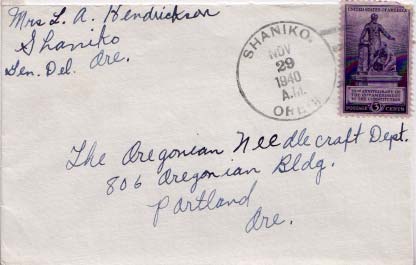 Mrs L. A. Hendrickson
Shaniko
Gen. Del. Ore.
SHANIKO.
NOV
29
1940
A.M.
OREG.
UNITED STATES OF AMERICA
75TH ANNIVERSARY OF
THE 13TH AMENDMENT
TO THE CONSTITUTION
POSTAGE 3 CENTS
The Oregonian Needlecraft Dept.
806 Oregonian Bldg.
Portland
Ore.